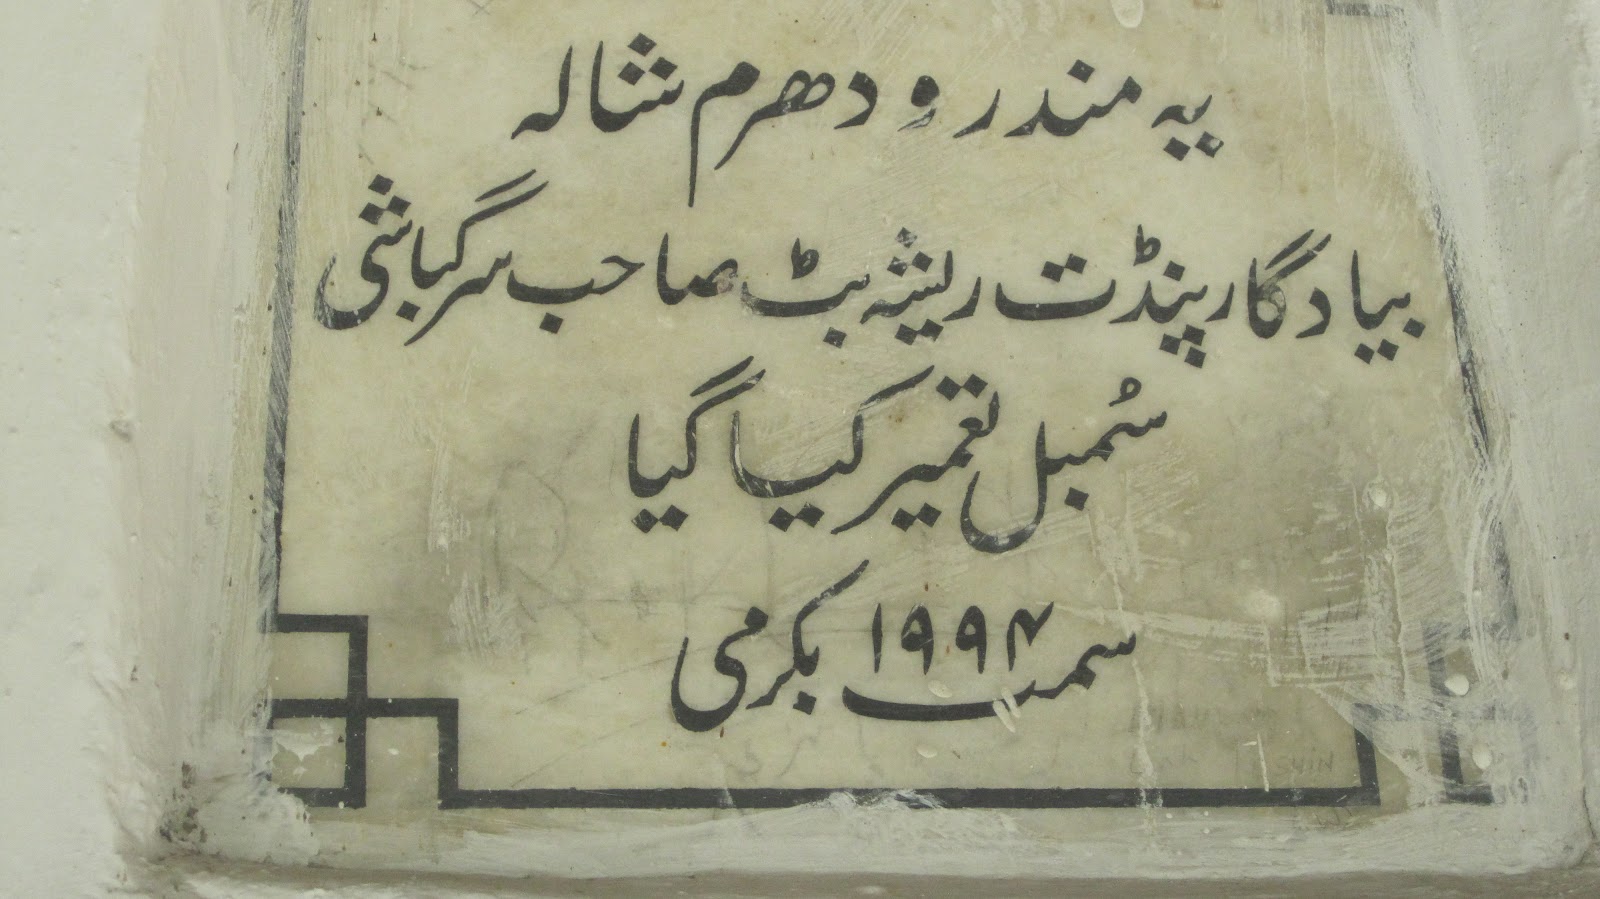 یہ مندر و دھرم شالہ
بیادگار پنڈت ریشہ بٹ صاحب سرگباشی
سُمبل تعمیر کیا گیا
سمت ۱۹۹۴ بکرمی